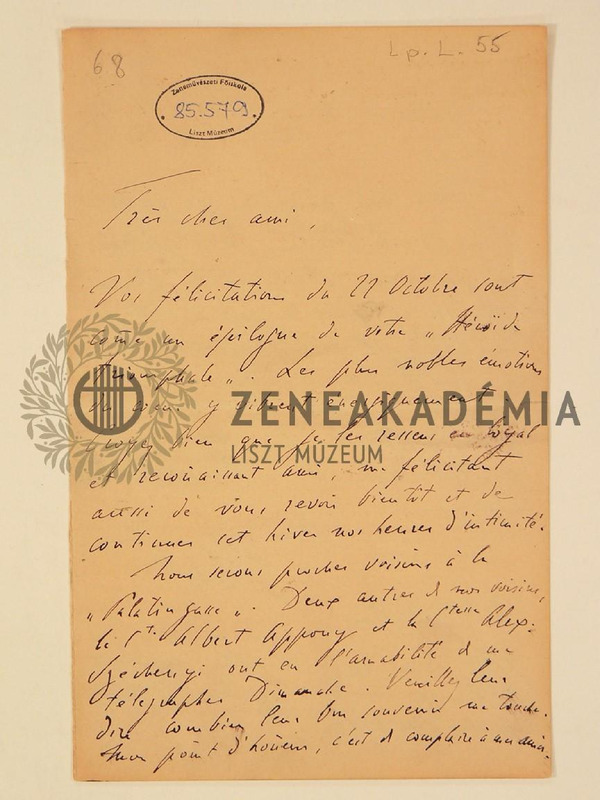 68
Lp. L. 55
Zeneművészeti Főiskola
85.579
Liszt Múzeum
Très cher ami,
Vos félicitations du 22 Octobre sont
côme un épilogue de votre „Héroïde
triomphale". Les plus nobles émotions
du cœur y vibrent
ZENEAKADÉMIA
Croyez bien que je les ressens en loyal
LISZT MÚZEUM
et reconnaissant ami, me félicitant
aussi de vous revoir bientôt et de
continuer cet hiver nos heures d'intimité.
Nous serons proches voisins à la
„Palatingasse". Deux autres de nos voisins,
le Cte Albert Appony et la Ctesse Alex.
Széchenyi ont eu l'amabilité de me
télégraphier Dimanche. Veuillez leur
dire combien leur bon souvenir me touche.
Mon point d'hôneur, c'est de complaire à mes amis.